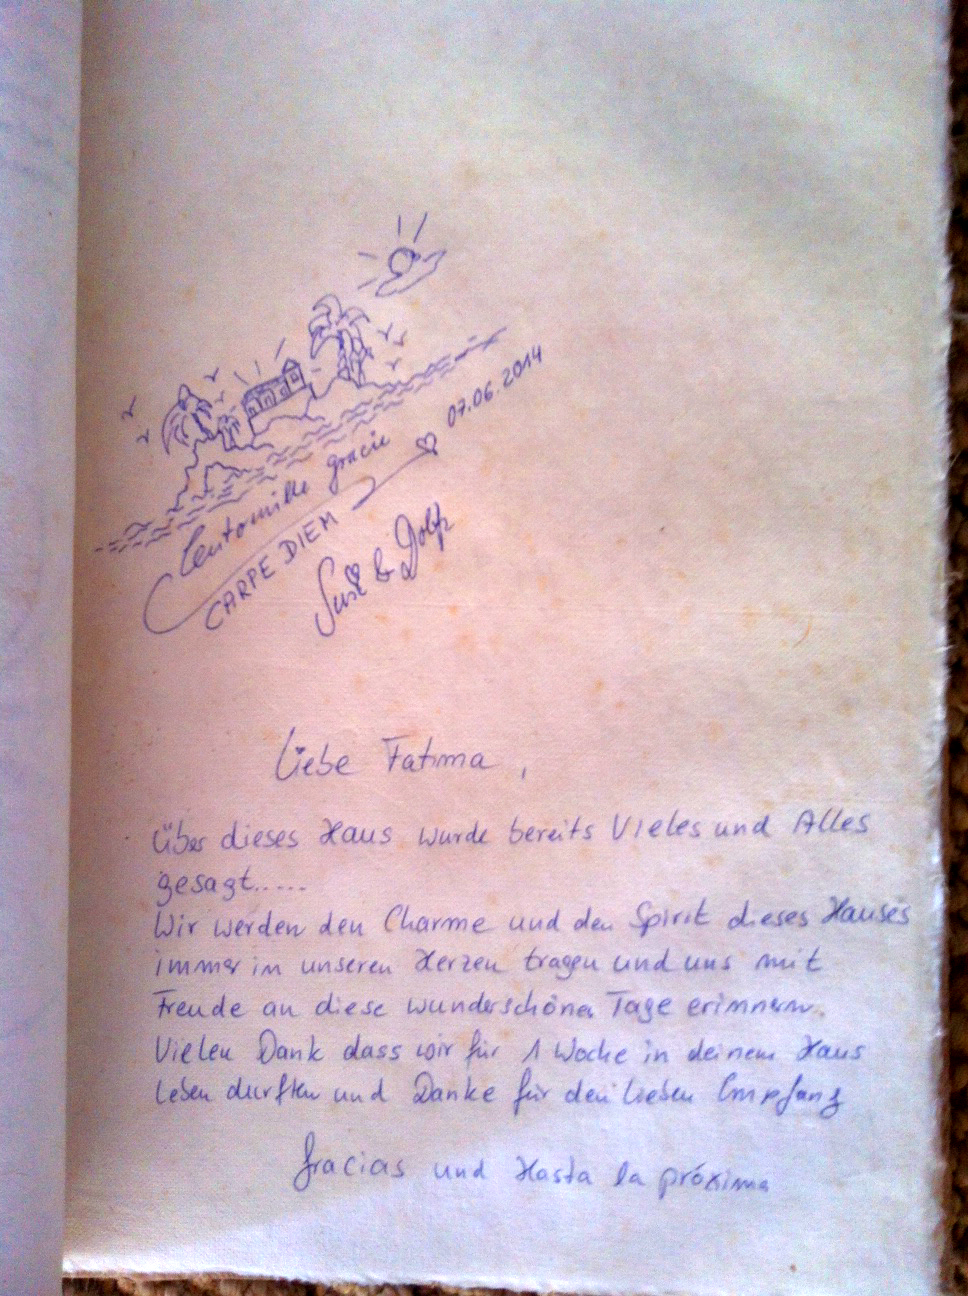 Centomille gracie
CARPE DIEM 07.06.2014
Susi & Dolf
Liebe Fatima,
Über dieses Haus wurde bereits Vieles und Alles
gesagt.....
Wir werden den Charme und den Spirit dieses Hauses
immer in unseren Herzen tragen und uns mit
Freude an diese wunderschönen Tage erinnern.
Vielen Dank dass wir für 1 Woche in deinem Haus
leben durften und Danke für den lieben Empfang
Gracias und Hasta la próxima